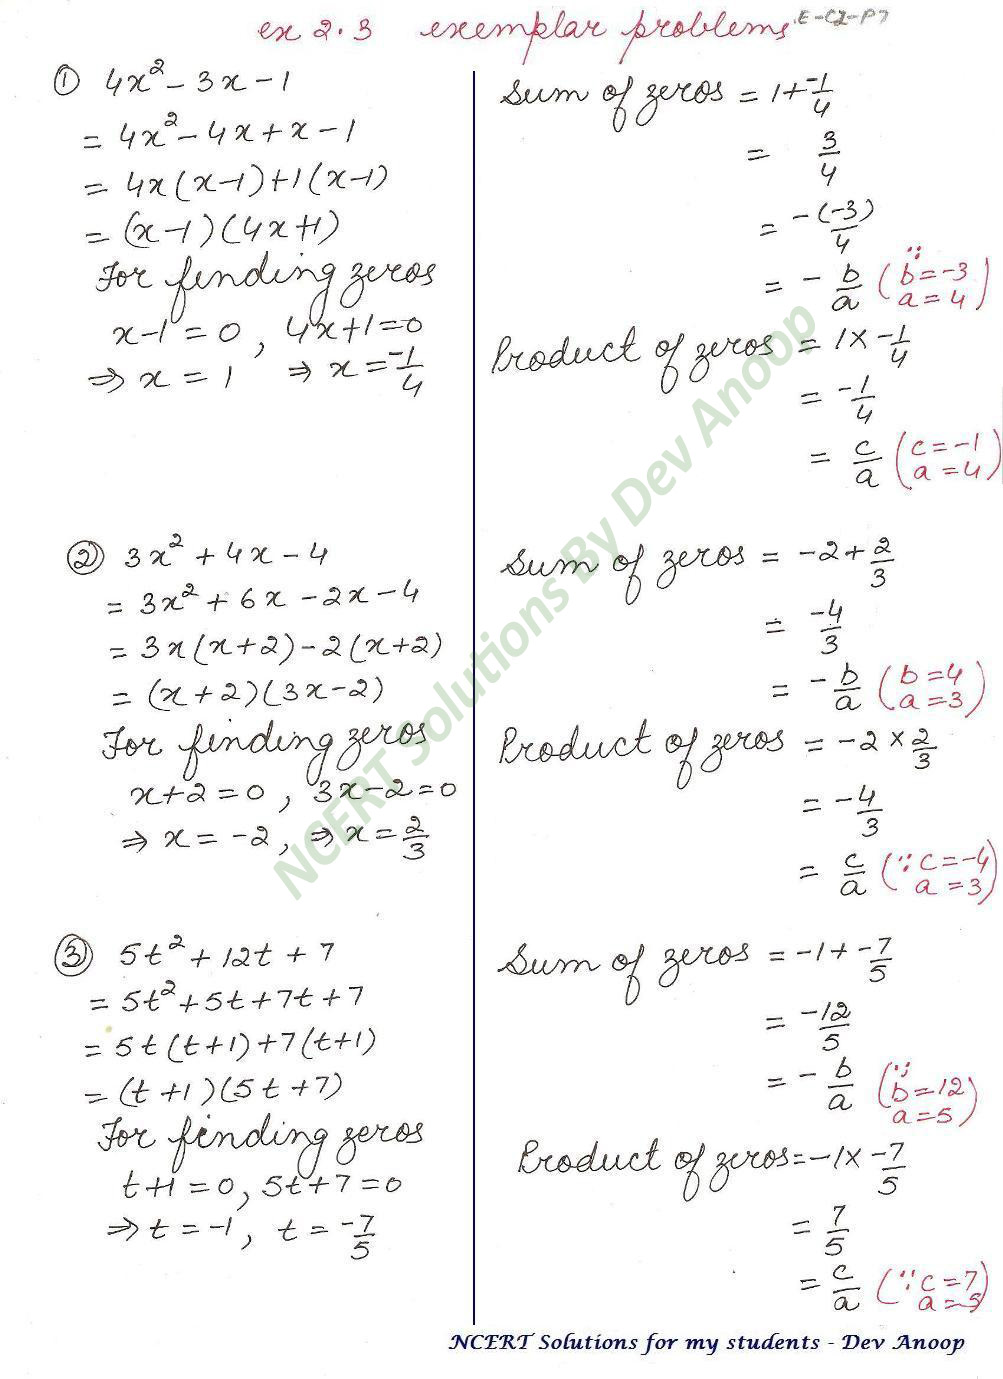 ex 2.3 exemplar problems E-C2-P7
① 4x² - 3x - 1
= 4x² - 4x + x - 1
= 4x(x-1)+1(x-1)
= (x-1)(4x+1)
For finding zeros
x-1 = 0, 4x+1=0
⇒ x = 1 ⇒ x = -1/4
Sum of zeros = 1 + -1/4
= 3/4
= -(-3)/4
= - b/a (∵ b=-3 a=4)
Product of zeros = 1 × -1/4
= -1/4
= c/a (c=-1 a=4)
② 3x² + 4x - 4
= 3x² + 6x - 2x - 4
= 3x(x+2)-2(x+2)
= (x+2)(3x-2)
For finding zeros
x+2 = 0, 3x-2=0
⇒ x = -2, ⇒ x = 2/3
Sum of zeros = -2 + 2/3
= -4/3
= - b/a (b=4 a=3)
Product of zeros = -2 × 2/3
= -4/3
= c/a (∵ c=-4 a=3)
③ 5t² + 12t + 7
= 5t² + 5t + 7t + 7
= 5t(t+1)+7(t+1)
= (t+1)(5t+7)
For finding zeros
t+1 = 0, 5t+7 = 0
⇒ t = -1, t = -7/5
Sum of zeros = -1 + -7/5
= -12/5
= - b/a (∵ b=12 a=5)
Product of zeros = -1 × -7/5
= 7/5
= c/a (∵ c=7 a=5)
NCERT Solutions By Dev Anoop
NCERT Solutions for my students - Dev Anoop